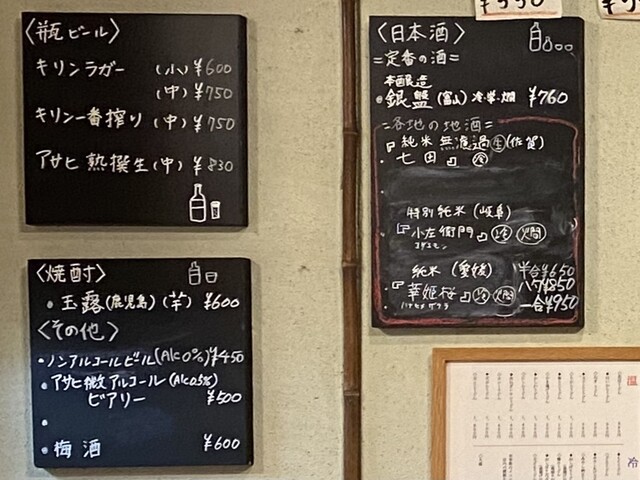 〈瓶ビール〉
キリンラガー (小) ¥600
(中) ¥750
キリン一番搾り (中) ¥750
アサヒ 熟撰生 (中) ¥830
〈焼酎〉
玉露 (鹿児島) (芋) ¥600
〈その他〉
ノンアルコールビール (Alc0%) ¥450
アサヒ微アルコール (Alc0.5%)
ビアリー ¥500
梅酒 ¥600
〈日本酒〉
=定番の酒=
本醸造
銀盤 (富山) 冷・常・燗 ¥760
=各地の地酒=
純米無濾過生 (佐賀)
『七田』 冷
特別純米 (岐阜)
『小左衛門』 冷 燗
コザエモン
純米 (愛媛)
『華姫桜』 冷 燗
ハナヒメザクラ
半合¥650
八勺¥850
一合¥950